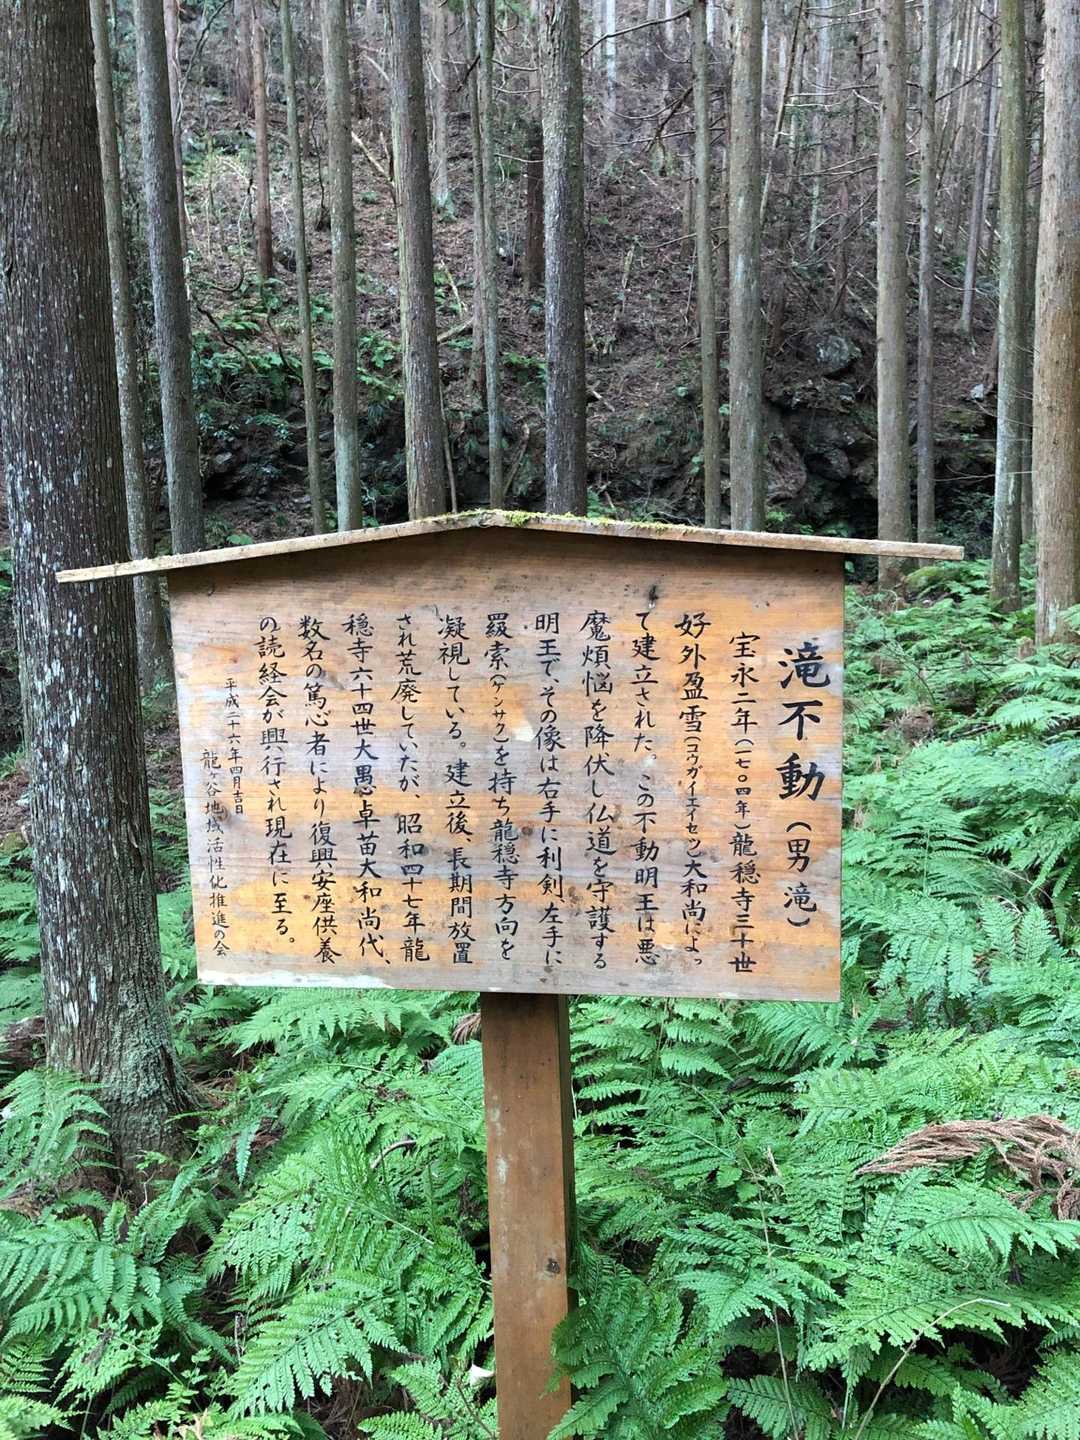 滝不動（男滝）
宝永二年（一七〇四年）龍穏寺三十世
好外盈雪（コウガイエイセツ）大和尚によっ
て建立された。この不動明王は悪
魔煩悩を降伏し仏道を守護する
明王で、その像は右手に利剣、左手に
羂索（ケンサク）を持ち龍穏寺方向を
凝視している。建立後、長期間放置
され荒廃していたが、昭和四十七年龍
穏寺六十四世大愚卓苗大和尚代、
数名の篤心者により復興安座供養
の読経会が興行され現在に至る。
平成二十六年四月吉日
龍ヶ谷地域活性化推進の会